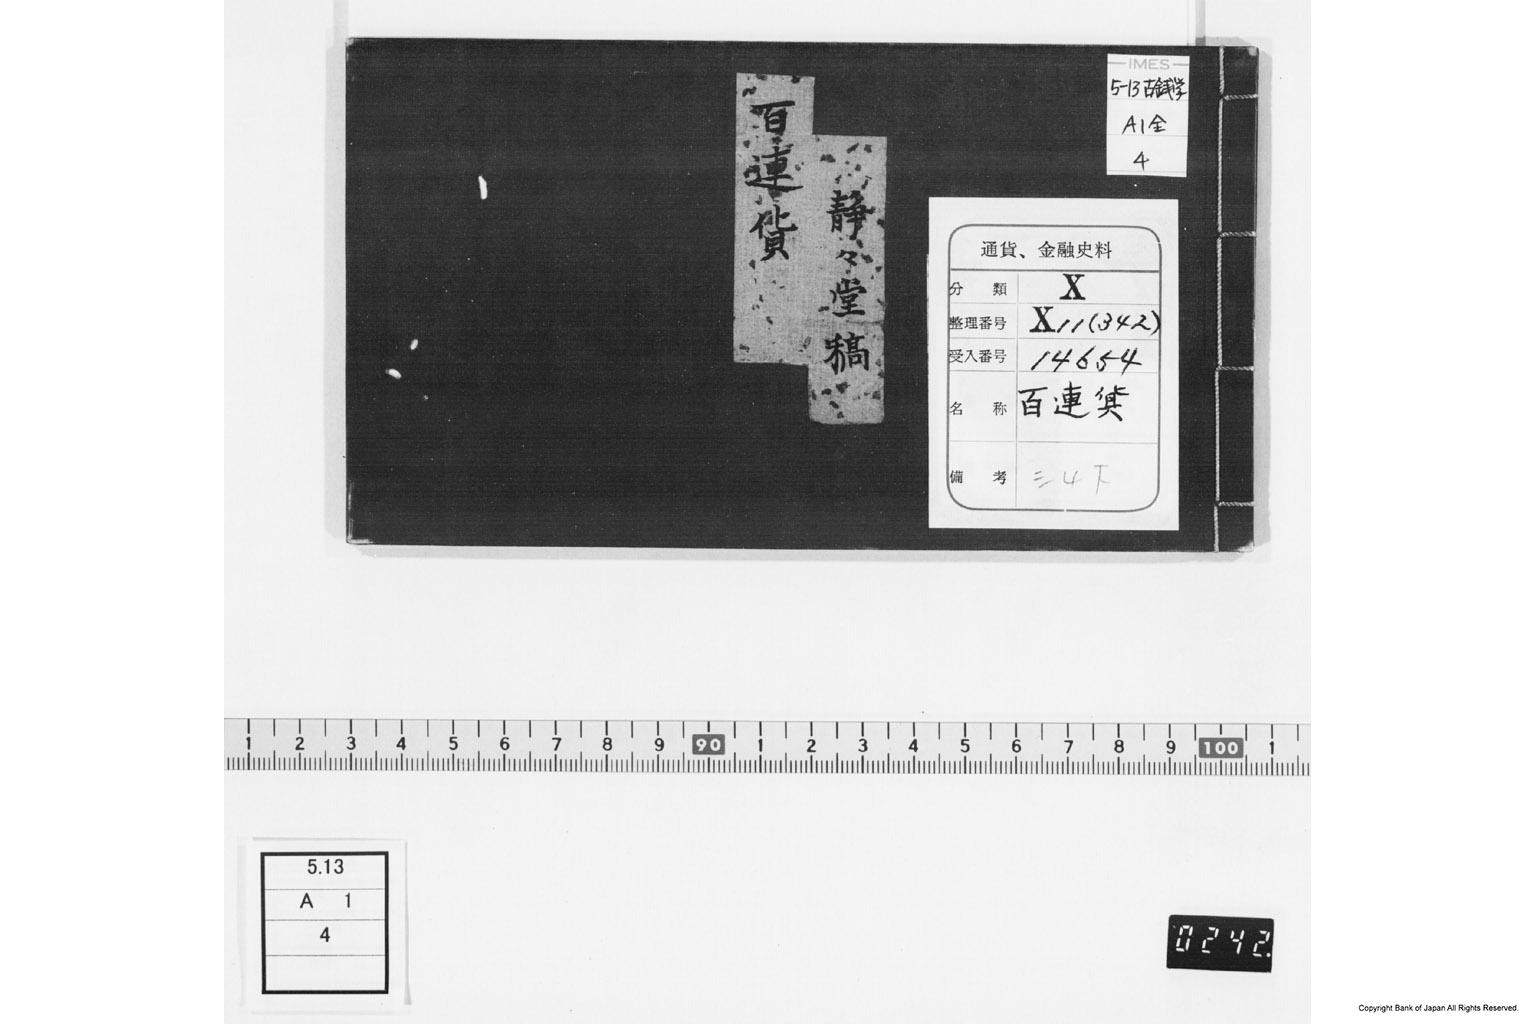 百連貨
静々堂稿
IMES
5-13古銭学
A1全
4
通貨、金融史料
分類 X
整理番号 X11(342)
受入番号 14654
名称 百連貨
備考 三4下
1 2 3 4 5 6 7 8 9 90 1 2 3 4 5 6 7 8 9 100 1
5.13
A 1
4
0242.
Copyright Bank of Japan All Rights Reserved.